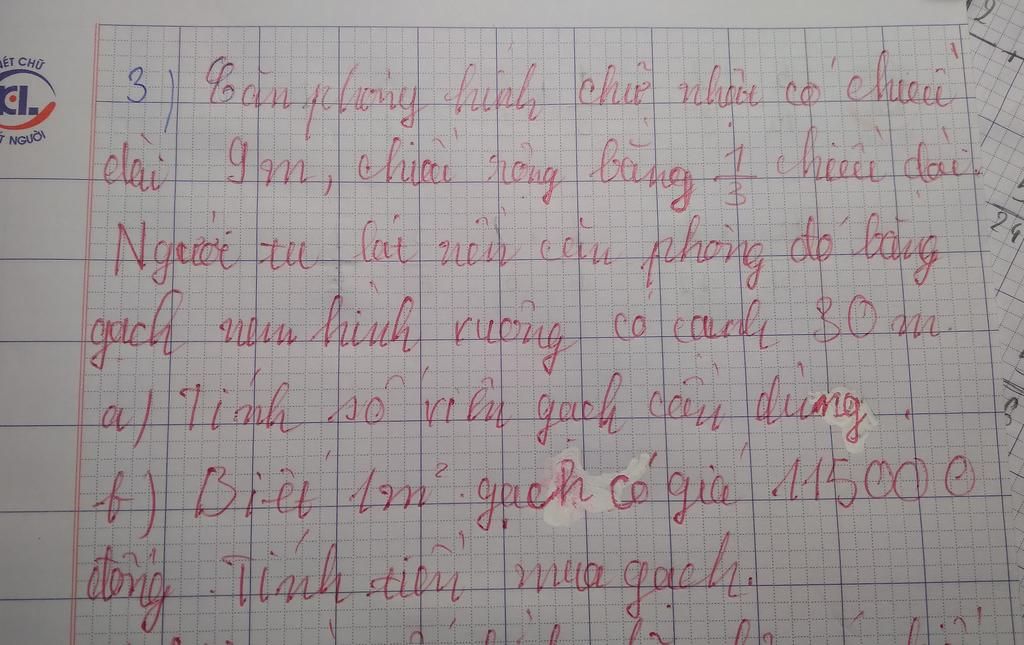 ÉT CHỮ
CL
Ữ NGƯỜI
3) Căn phòng hình chữ nhật có chiều
dài 9m, chiều rộng bằng 1/3 chiều dài.
Người ta lát nền căn phòng đó bằng
gạch men hình vuông có cạnh 30 m.
a) Tính số viên gạch cần dùng.
b) Biết 1m² gạch có giá 115000
đồng. Tính tiền mua gạch.